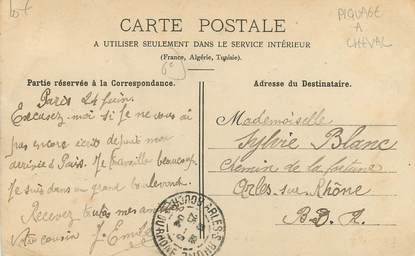 PIQUAGE
A
CHEVAL
CARTE POSTALE
A UTILISER SEULEMENT DANS LE SERVICE INTÉRIEUR
(France, Algérie, Tunisie).
Partie réservée à la Correspondance.
Adresse du Destinataire.
Paris 24 juin.
Excusez-moi si je ne vous ai
pas encore écrit depuis mon
arrivée à Paris. Je travaille beaucoup.
Je suis dans un grand boulevard.
Recevez toutes mes
Votre cousin J.
Mademoiselle
Sylvie Blanc
Chemin de la
Arles-sur-Rhône
B. D. R.